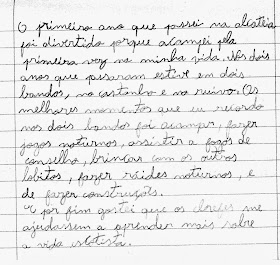 O primeiro ano que passei na alcateia
foi divertido porque acampei pela
primeira vez na minha vida. Nos dois
anos que passaram estive em dois
bandos, no castanho e no ruivo. Os
melhores momentos que eu recordo
nos dois bandos foi acampar, fazer
jogos noturnos, assistir a fogos de
conselho, brincar com os outros
lobitos, fazer ráides noturnos, e
de fazer construções.
E por fim gostei que os chefes me
ajudassem a aprender mais sobre
a vida escotista.